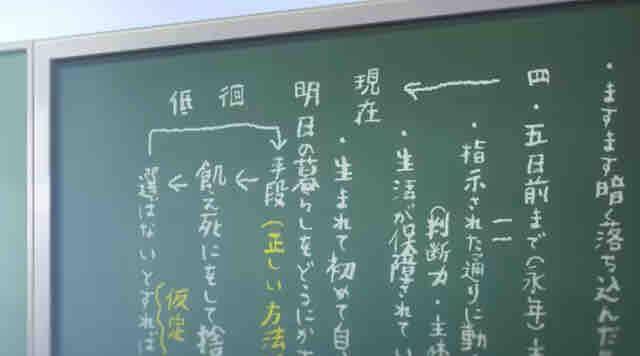 ・ますます暗く落ち込んだ
四・五日前まで(永年)
・指示された通りに動
(判断力・主体
・生活が保障されてい
現在
・生まれて初めて自
明日の暮らしをどうにか
手段(正しい方法
飢え死にをして捨
選ばないとすれば
仮定
低徊